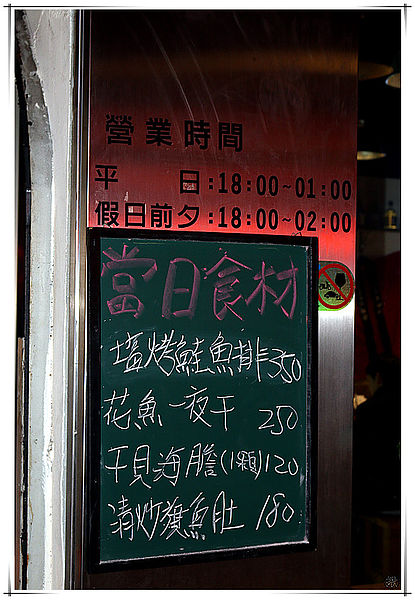 營業時間
平　日:18:00~01:00
假日前夕:18:00~02:00
當日食材
塩烤鮭魚排350
花魚一夜干 250
干貝海膽(1顆)120
清炒旗魚肚 180